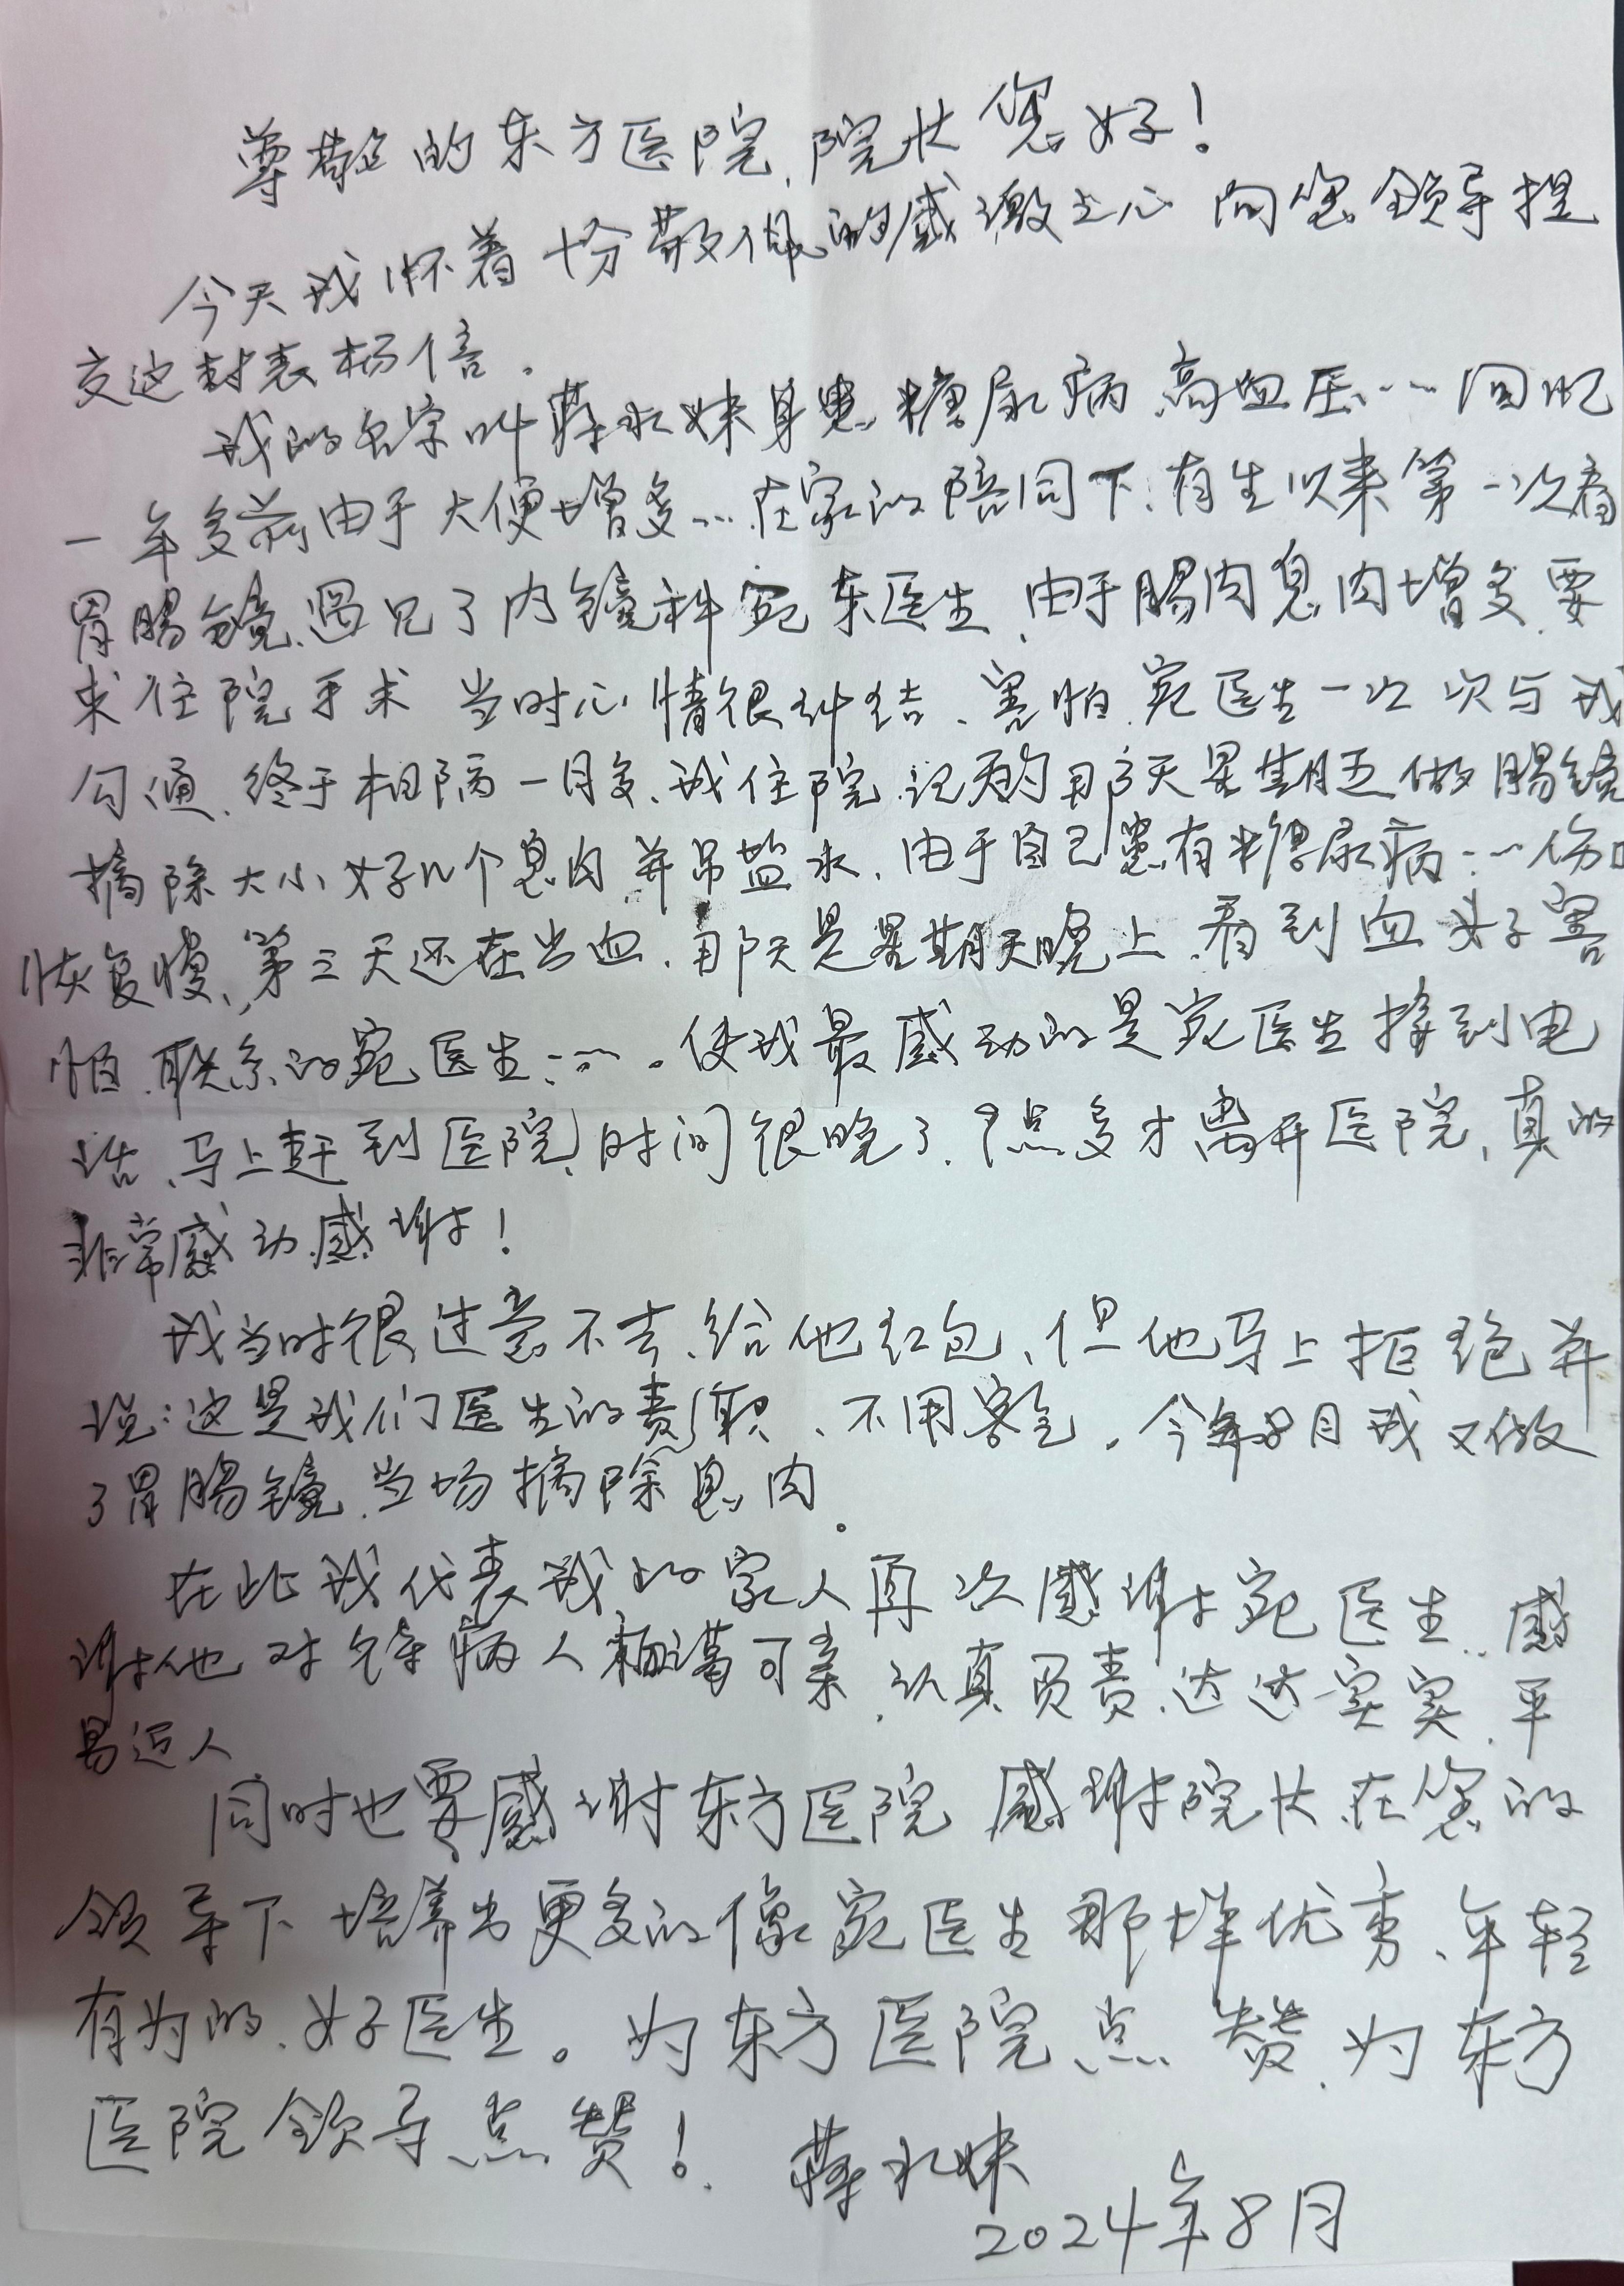 尊敬的东方医院,院长您好!
今天我怀着十分敬佩的感激之心向您领导提
交这封表杨信.
我的名字叫蒋永妹身患糖尿病、高血压……回忆
一年多前由于大便增多…在家的陪同下,有生以来第一次看
胃肠镜,遇见了内镜科宛东医生,由于肠肉息肉增多,要
求住院手术 当时心情很纠结、害怕,宛医生一次次与我
勾通,终于相隔一月多,我住院,记的那天星期五做肠镜
摘除大小好几个息肉并吊盐水,由于自己患有糖尿病……伤口
恢复慢,第三天还在出血,那天是星期天晚上,看到血好害
怕,联系的宛医生……。使我最感动的是宛医生接到电
话,马上赶到医院,时间很晚了,9点多才离开医院,真的
非常感动,感谢!
我当时很过意不去,给他红包,但他马上拒绝并
说:这是我们医生的责职,不用客气,今年8月我又做
了胃肠镜,当场摘除息肉。
在此我代表我的家人再次感谢宛医生,感
谢他对每病人和蔼可亲,认真负责,达达实实,平
易近人
同时也要感谢东方医院 感谢院长,在您的
领导下培养出更多的像宛医生那样优秀、年轻
有为的、好医生。为东方医院点赞,为东方
医院领导点赞!
蒋永妹
2024年8月